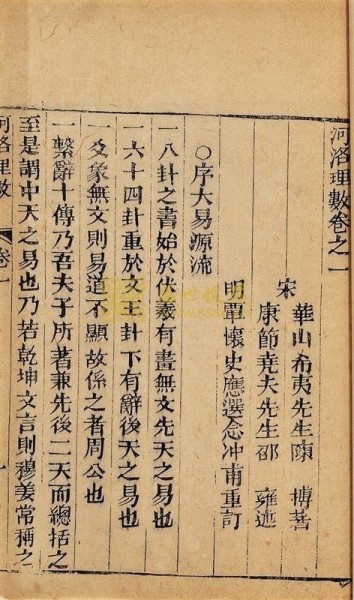 河洛理數卷之一
宋 華山希夷先生陳 摶著
康節堯夫先生邵 雍述
明覃懷史應選念冲甫重訂
○序大易源流
一八卦之書始於伏羲有畫無文先天之易也
一六十四卦重於文王卦下有辭後天之易也
一爻象無文則易道不顯故係之者周公也
一繫辭十傳乃吾夫子所著兼先後二天而總括之
至是謂中天之易也乃若乾坤文言則穆姜常稱之
河洛理數 卷一 一